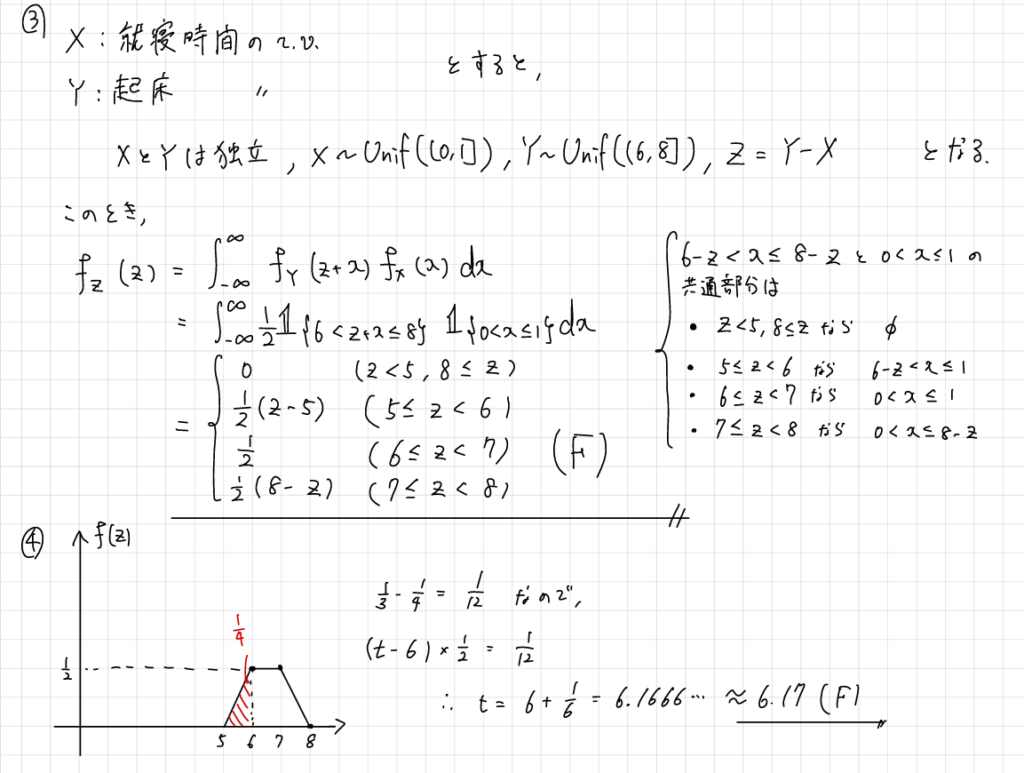 ③
X : 就寝時間の r.v.
Y : 起床 〃
とすると,
XとYは独立, X ~ Unif((0,1]), Y ~ Unif((6,8]), Z = Y-X となる.
このとき,
f_Z (z) = ∫_{-∞}^{∞} f_Y (z+x) f_X (x) dx
= ∫_{-∞}^{∞} 1/2 𝟙{6<z+x≤8} 𝟙{0<x≤1} dx
= { 0 (z<5, 8≤z)
1/2 (z-5) (5≤z<6)
1/2 (6≤z<7) (F)
1/2 (8-z) (7≤z<8)
{ 6-z<x≤8-z と 0<x≤1 の
共通部分は
• z<5, 8≤z なら ϕ
• 5≤z<6 なら 6-z<x≤1
• 6≤z<7 なら 0<x≤1
• 7≤z<8 なら 0<x≤8-z
④
f(z)
1/4
1/2
5 6 7 8
1/3 - 1/4 = 1/12 なので,
(t-6) × 1/2 = 1/12
∴ t = 6 + 1/6 = 6.1666… ≈ 6.17 (F)